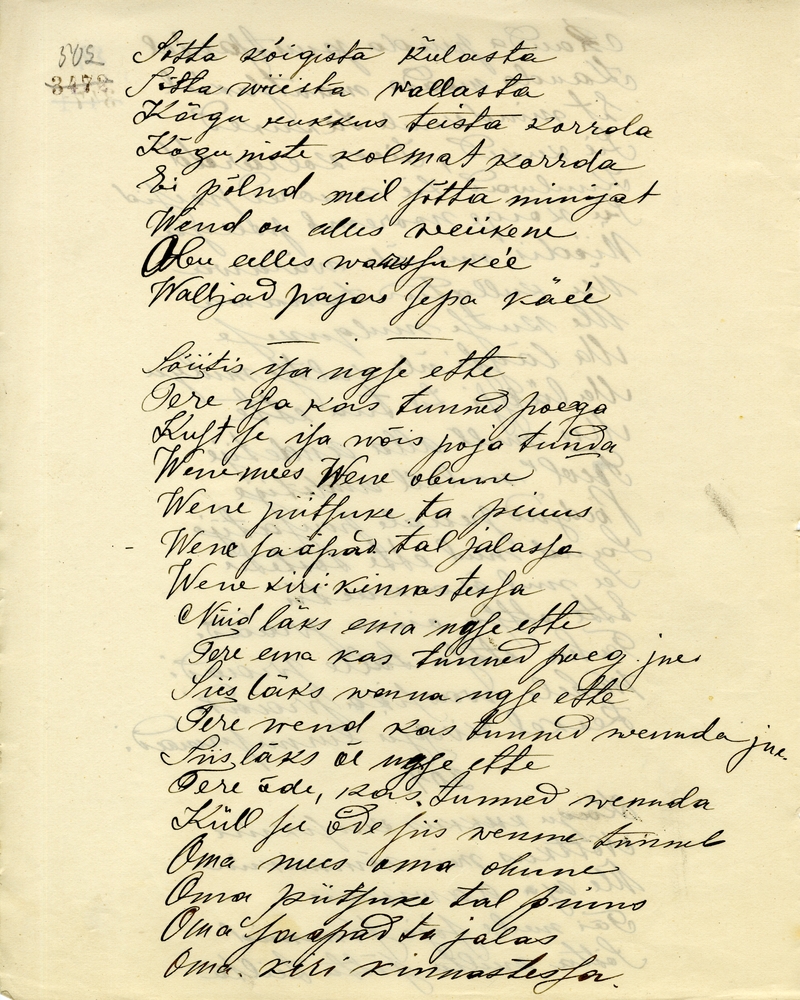 502
3472
Sõtta kõigista külasta
Sõtta wiiesta wallasta
Kägu kukkus teista korrda
Kägu niste kolmat korrda
Ei põlnd meil sõtta minijat
Wend on alles weiikene
Obu alles warssukée
Walljad pajas sepa käeé
Sõiitis isa ugse ette
Tere isa kas tunned poega
Kust se isa wõis poja tunda
Wene mees Wene obune
Wene piitsuke ta piuus
Wene saapad tal jalassa
Wene kiri kinnastessa
Nüid läks ema ugse ette
Tere ema kas tunned poeg jne.
Siis läks wenna ugse ette
Tere wend kas tunned wennda jne.
Siis läks õe ugse ette
Tere õde, kas tunned wennda
Küll see õde siis wenne tunneb
Oma mees oma obune
Oma piitsuke tal piuus
Oma saapad ta jalas
Oma kiri kinnastessa.